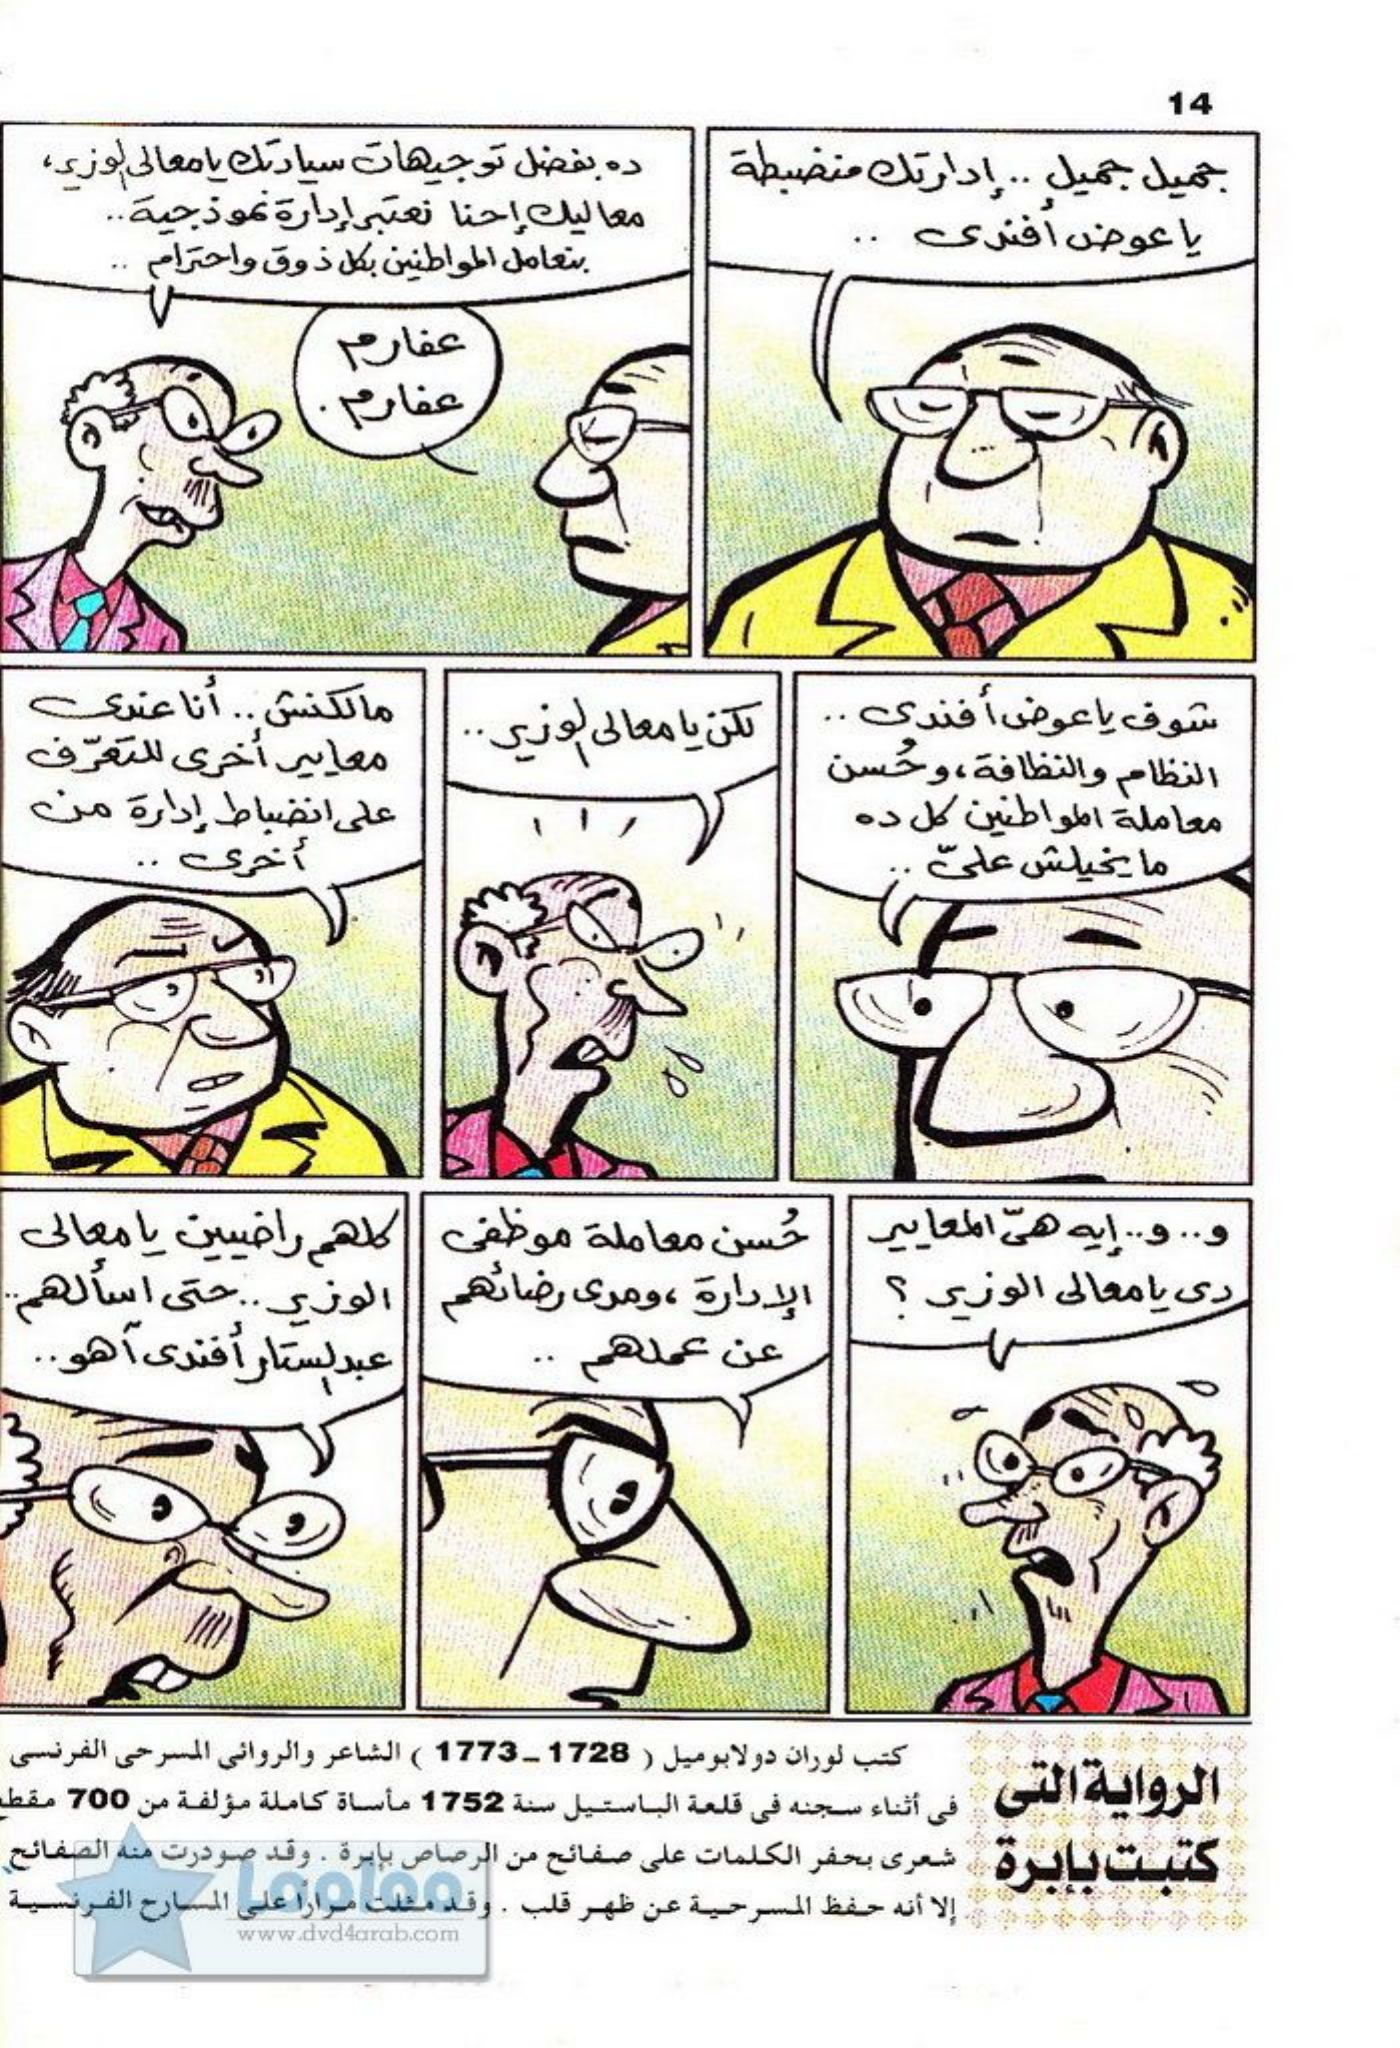 14
جميل جميل .. إدارتك منضبطة
يا عوض أفندى ..
ده بفضل توجيهات سيادتك يا معالى الوزير،
معاليك إحنا نعتبر إدارة نموذجية..
بنعامل المواطنين بكل ذوق واحترام ..
عفارم
عفارم .
شوف يا عوض أفندى ..
النظام والنظافة، وحُسن
معاملة المواطنين كل ده
ما يخيلش علىّ ..
لكن يا معالى الوزير ..
مالكنش .. أنا عندى
معايير أخرى للتعرّف
على انضباط إدارة من
أخرى ..
و .. و .. إيه هىّ المعايير
دى يا معالى الوزير ؟
حُسن معاملة موظفى
الإدارة ، ومدى رضائهم
عن عملهم ..
كلهم راضيين يا معالى
الوزير .. حتى اسألهم ..
عبد الستار أفندى آهو ..
الرواية التى
كتبت بإبرة
كتب لوران دولابوميل ( 1728 ـ 1773 ) الشاعر والروائى المسرحى الفرنسى
فى أثناء سجنه فى قلعة الباستيل سنة 1752 مأساة كاملة مؤلفة من 700 مقطع
شعرى بحفر الكلمات على صفائح من الرصاص بإبرة . وقد صودرت منه الصفائح
إلا أنه حفظ المسرحية عن ظهر قلب . وقد مثلت مرارًا على المسارح الفرنسية
www.dvd4arab.com